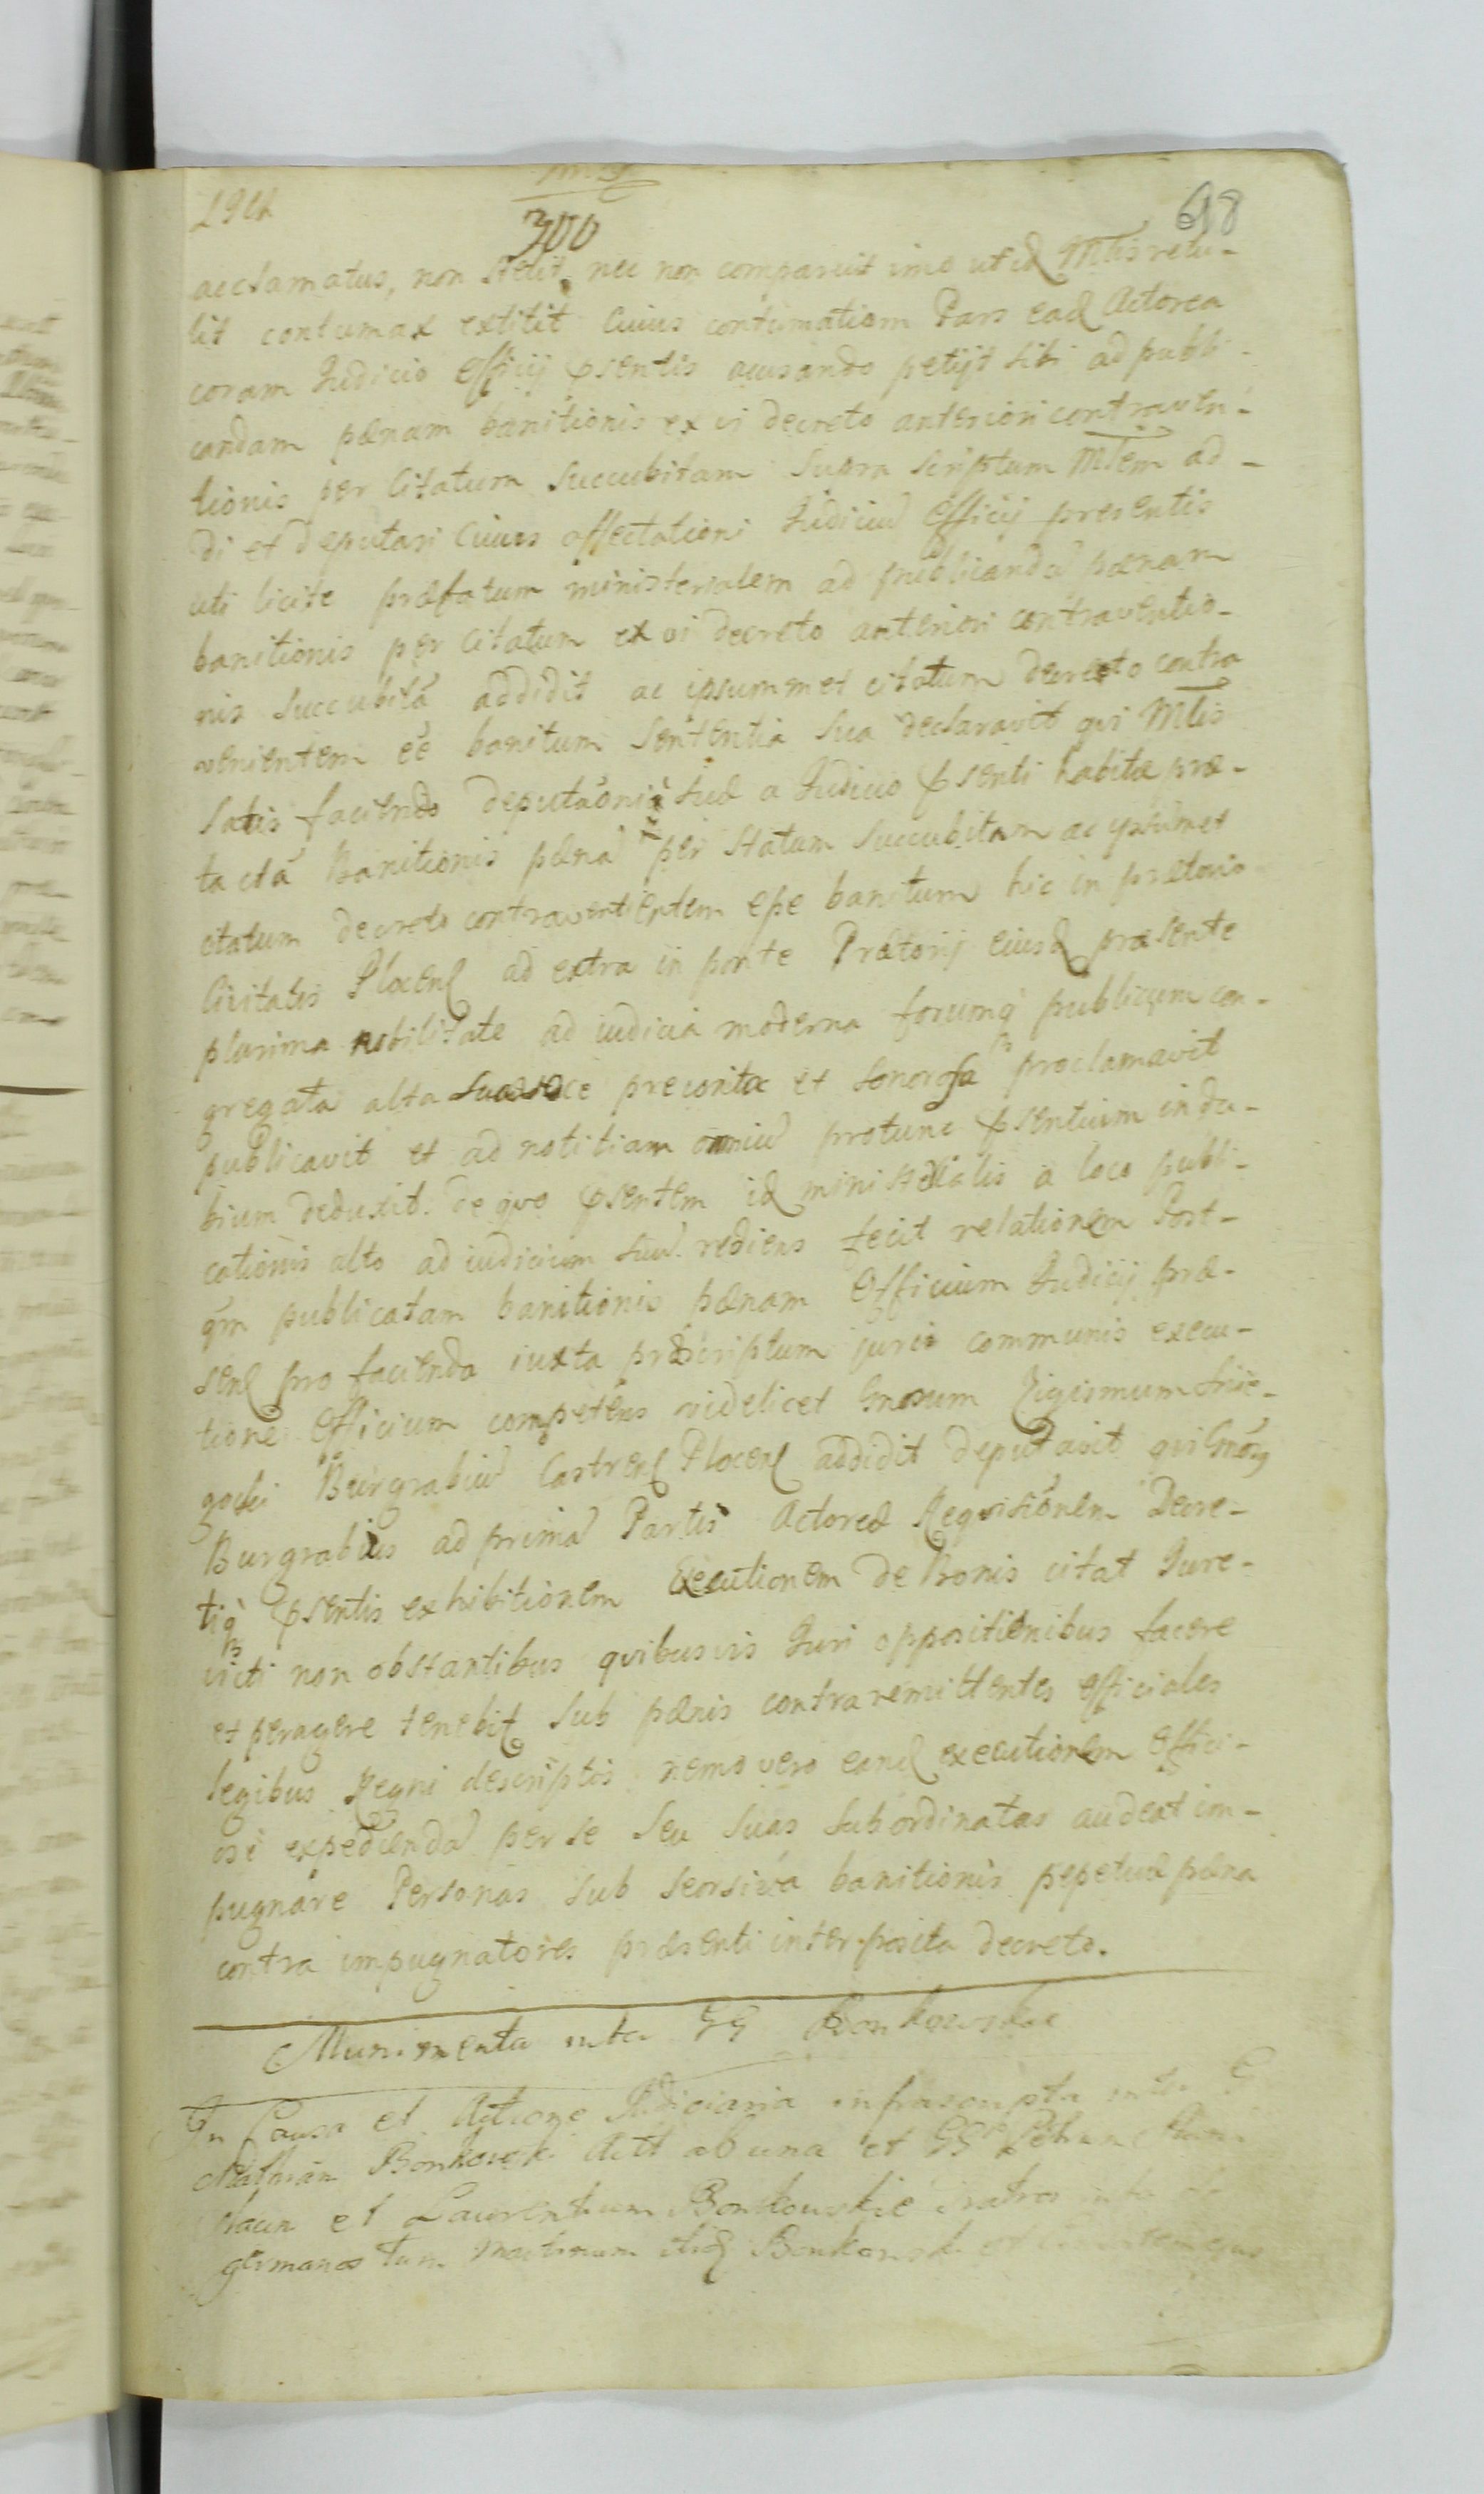 300
98
acclamatus, non stetit, nec non comparuit imo ut id Mtlis retu-
lit contumax extitit Cuius contumatiam Pars ead Actorea
coram Judicio Officij psentis acusando petijt sibi ad publi-
candam pænam banitionis ex vi decreto anteriori contraven-
tionis per Citatum Succubitam Supra scriptum Mtlem ad-
di et deputari Cuius affectationi Judiciu Officij presentis
uti licite præfatum ministerialem ad publicanda pænam
banitionis per Citatum ex vi decreto anteriori contraventio-
nis Succubita addidit ac ipsummet citatum decreto contra
venientem ee banitum Sententia Sua declaravit qui Mtlis
Satis faciendo deputaoni Suæ a Judicio psenti habitæ præ-
tacta Banitionis pæna per statum Succubitam ac ipsumet
citatum decreto contravenientem esse banitum hic in prætorio
Civitatis Plocens ad extra in ponte Prætorij eiusd præsente
plurima nobilitate ad iudicia moderna forumq publicum con-
gregata alta voce preconita et Sonorosa proclamavit
publicavit et ad notitiam omniu protunc psentium indu-
bium deduxit. de quo psentem id ministerialis a loco publi-
cationis alto ad iudicium suu rediens fecit relationem Post-
qm publicatam banitionis pænam Officium Judicij præ-
sens pro facienda iuxta præscriptum juris communis execu-
tione Officium competens videlicet Gnosum Zigismum
Burgrabiu Castrens Plocens addidit deputavit qui Gnosus
Burgrabius ad prima Partis Actoreæ Requisionem Decre-
tiq psentis exhibitionem Executionem de Bonis citat Jure-
victi non obstantibus quibusvis Juri oppositionibus facere
et peragere tenebit Sub pænis contra remittentes officiales
legibus Regni descriptis nemo vero eand executionem Offici-
ose expedienda per se seu suas Subordinatas audeat im-
pugnare Personas Sub seorsiva banitionis pepetuæ pæna
contra impugnatores præsenti interposita decreto.
Munimenta inter GG Bonkowskie
In Causa et Actione Judiciaria infrascripta inter G
Mathiam Bonkowski Act ab una et GG
et Laurentium Bonkowskie fratres inter se
germanos tum Martinum itid Bonkowski et